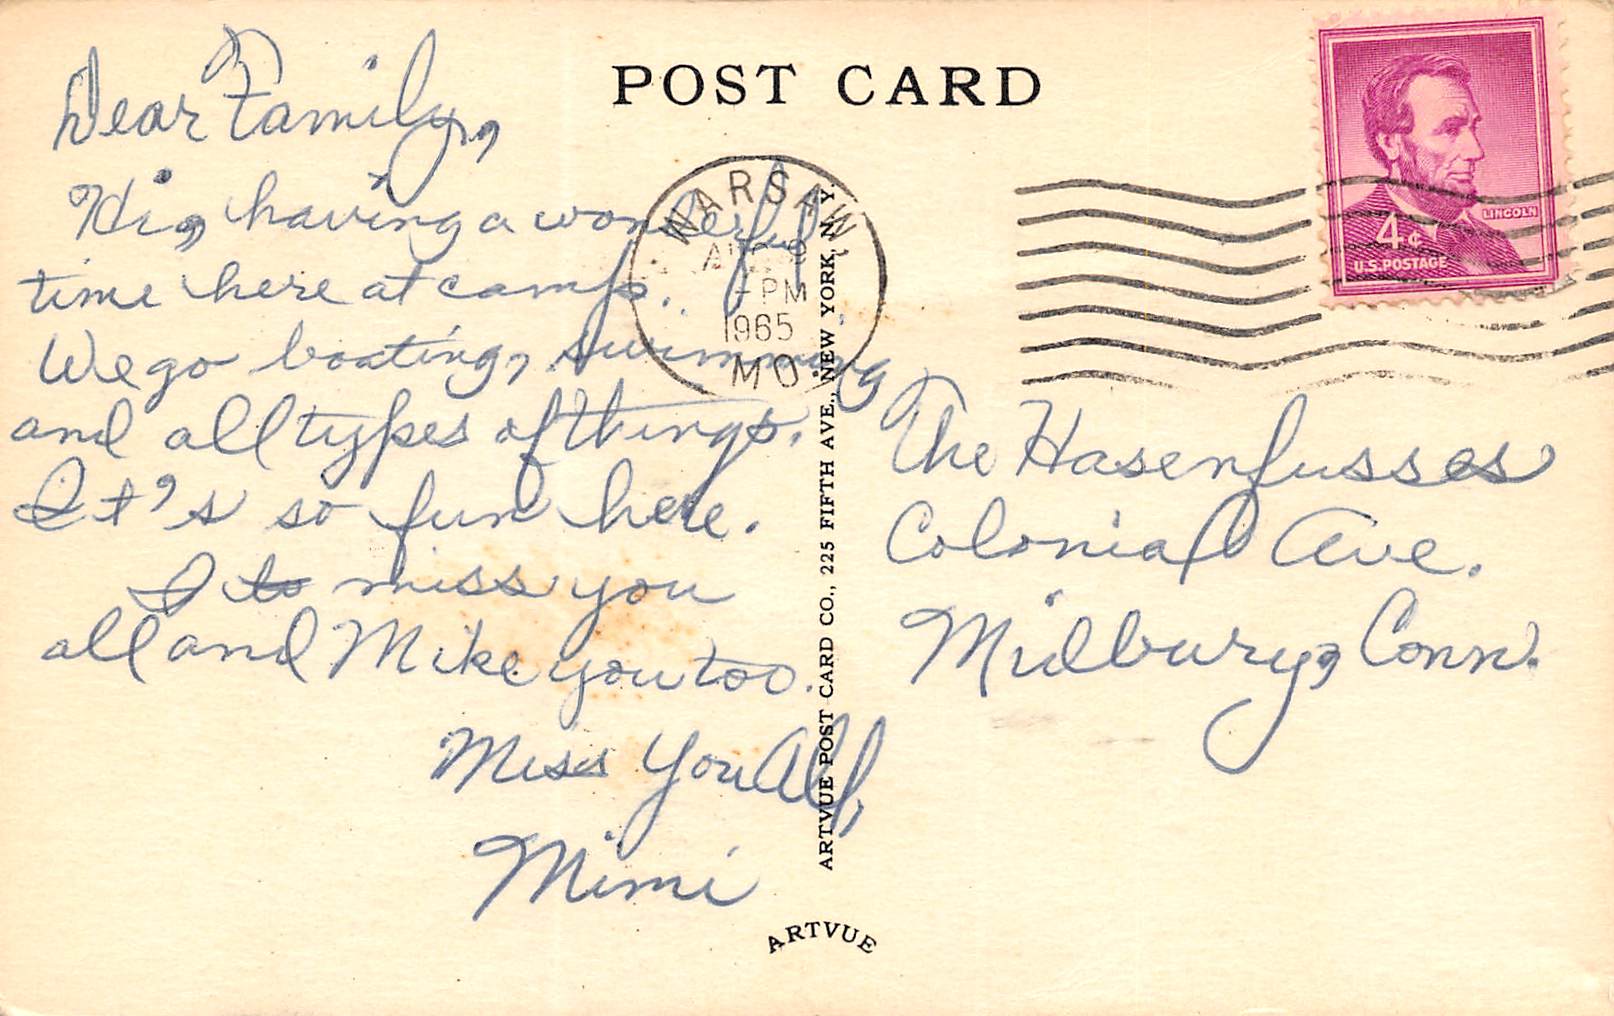 POST CARD
Dear Family,
Hi, having a wonderful
time here at camp.
We go boating, swimming
and all types of things.
It's so fun here.
I to miss you
all and Mike you too.
Miss You All,
Mimi
WARSAW
PM
1965
MO.
LINCOLN
4¢
U.S. POSTAGE
The Hasenfusses
Colonial Ave.
Midbury, Conn.
ARTVUE POST CARD CO., 225 FIFTH AVE., NEW YORK, N. Y.
ARTVUE